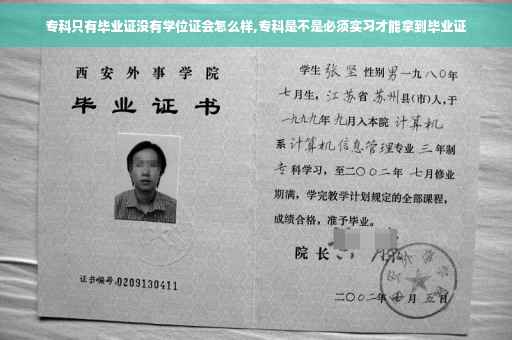 专科只有毕业证没有学位证会怎么样,专科是不是必须实习才能拿到毕业证
西安外事学院
毕业证书
证书编号:0209130411
学生 张坚 性别 男 一九八〇年
七月生, 江苏省 苏州县(市)人,于
一九九九年 九月入本院 计算机
系 计算机信息管理专业 三 年制
专 科学习,至二〇〇二年 七月修业
期满,学完教学计划规定的全部课程,
成绩合格,准予毕业。
院长
二〇〇二年 月 五日